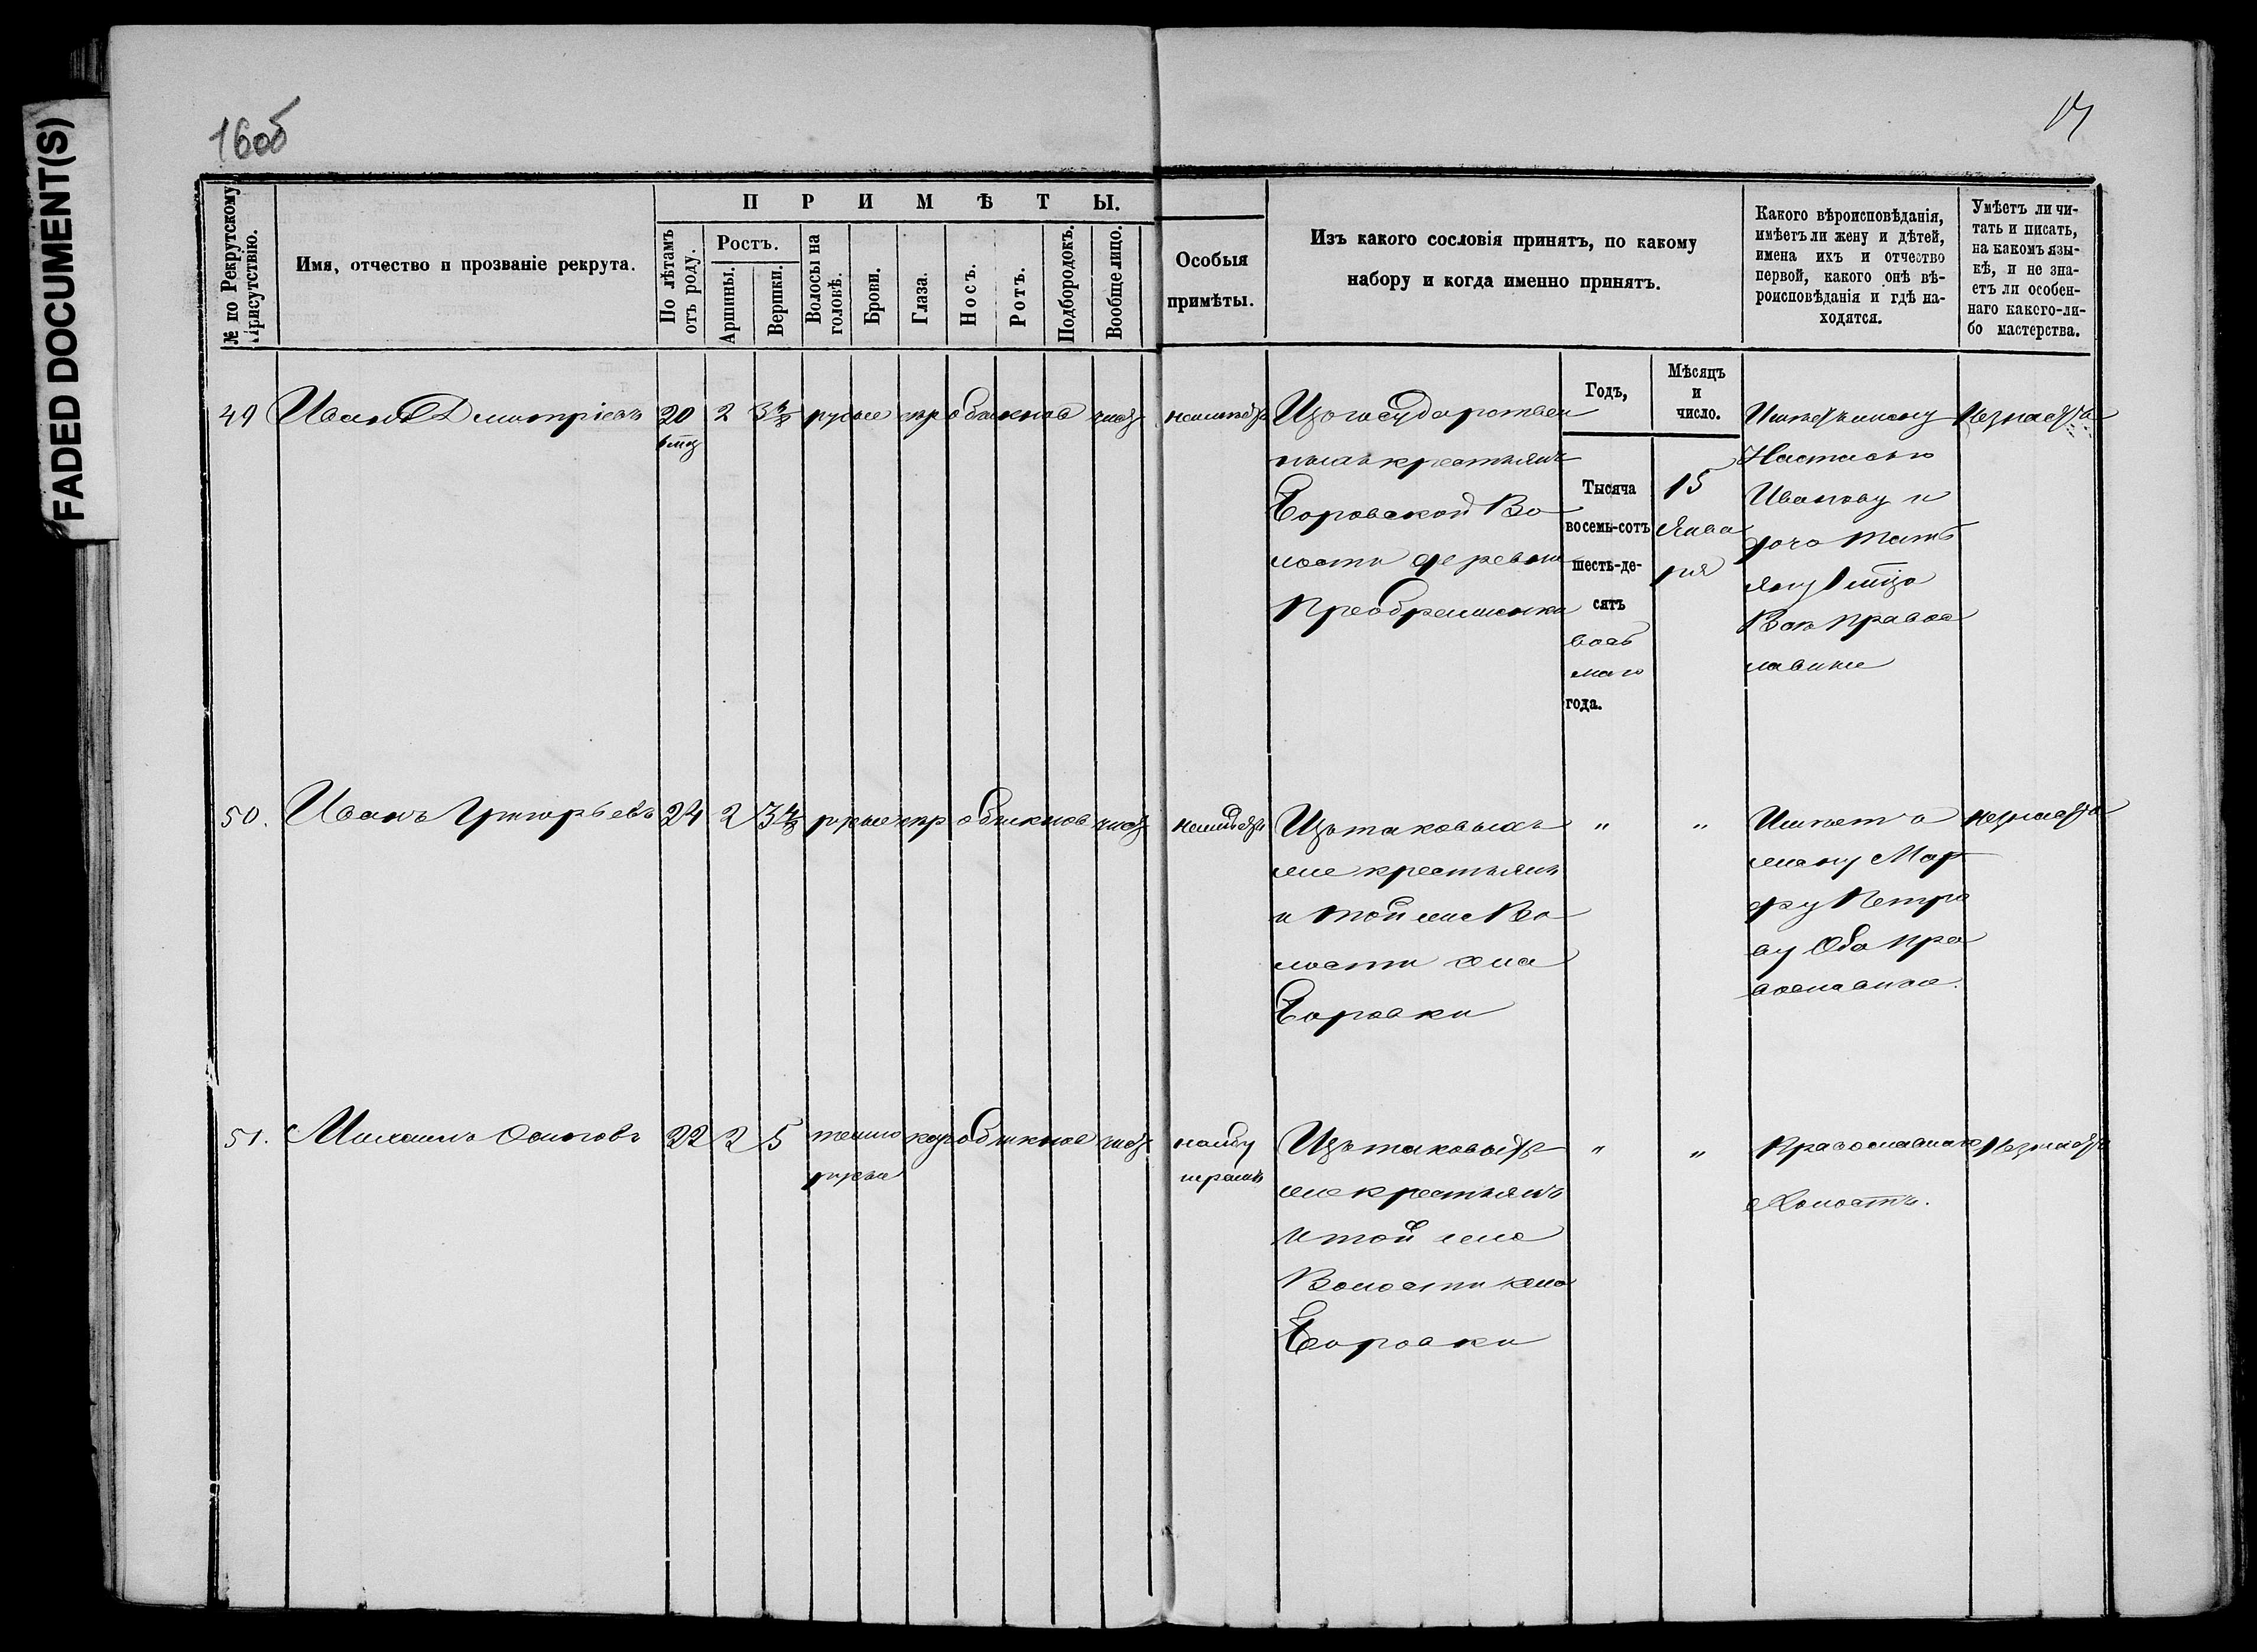 FADED DOCUMENT(S)
16об
17
№ по Рекрутскому Присутствію.
Имя, отчество и прозваніе рекрута.
ПРИМѢТЫ.
По лѣтамъ отъ роду.
Ростъ.
Аршины.
Вершки.
Волосы на головѣ.
Брови.
Глаза.
Носъ.
Ротъ.
Подбородокъ.
Вообще лицо.
Особыя
примѣты.
Изъ какого сословія принятъ, по какому
набору и когда именно принятъ.
Какого вѣроисповѣданія,
имѣетъ ли жену и дѣтей,
имена ихъ и отчество
первой, какого онѣ вѣ-
роисповѣданія и гдѣ на-
ходятся.
Умѣетъ ли чи-
тать и писать,
на какомъ язы-
кѣ, и не зна-
етъ ли особен-
наго какого-ли-
бо мастерства.
49 Иванъ Дмитріевъ 20 2 3 4/8 русые обыкнов чист
неимѣетъ
Изъ государствен
ныхъ крестьянъ
Боровской Во
лости деревни
Преображенки
Годъ,
Тысяча
восемь-сотъ
шесть-де-
сятъ
вось
маго
года.
Мѣсяцъ
и
число.
15
Янва
ря
Имѣетъ жену
Настасью
Иванову и
дочь Тать
яну
Всѣ правос
лавные
Незнаетъ
50. Иванъ Григорьевъ 24 2 3 4/8 русые обыкнов чист
неимѣетъ
Изъ таковыхъ
же крестьянъ
и той же Во
лости села
Боровки
" "
Имѣетъ
жену Мар
фу Петро
ву Оба пра
вославные.
незнаетъ
51. Михаилъ Осиповъ 22 2 5 темно обыкнов чист
русые
на лбу
шрамъ
Изъ таковыхъ
же крестьянъ
и той же
Волости села
Боровки
" "
Православнаго
Холостъ.
Незнаетъ